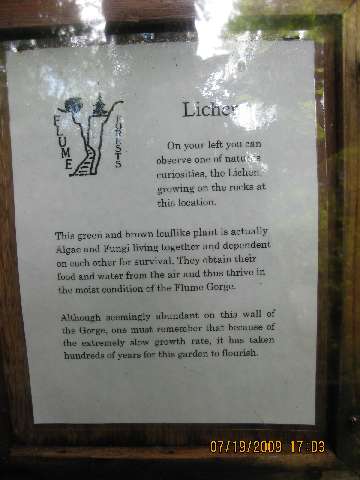 FLUME
FORESTS
Lichen
On your left you can
observe one of nature's
curiosities, the Lichen,
growing on the rocks at
this location.
This green and brown leaflike plant is actually
Algae and Fungi living together and dependent
on each other for survival. They obtain their
food and water from the air and thus thrive in
the moist condition of the Flume Gorge.
Although seemingly abundant on this wall of
the Gorge, one must remember that because of
the extremely slow growth rate, it has taken
hundreds of years for this garden to flourish.
07/19/2009 17:03